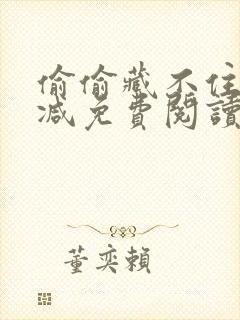 偷偷藏不住
减免費閱讀
董奕賴